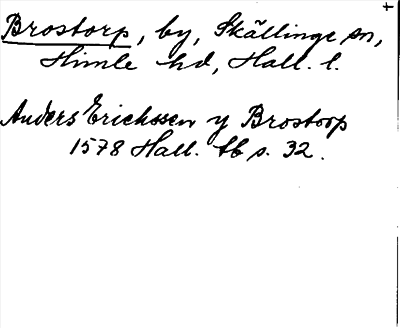 Brostorp, by, Skällinge sn,
Himle hd, Hall. l.
Anders Erichssen y Brostorp
1578 Hall. tb s. 32.